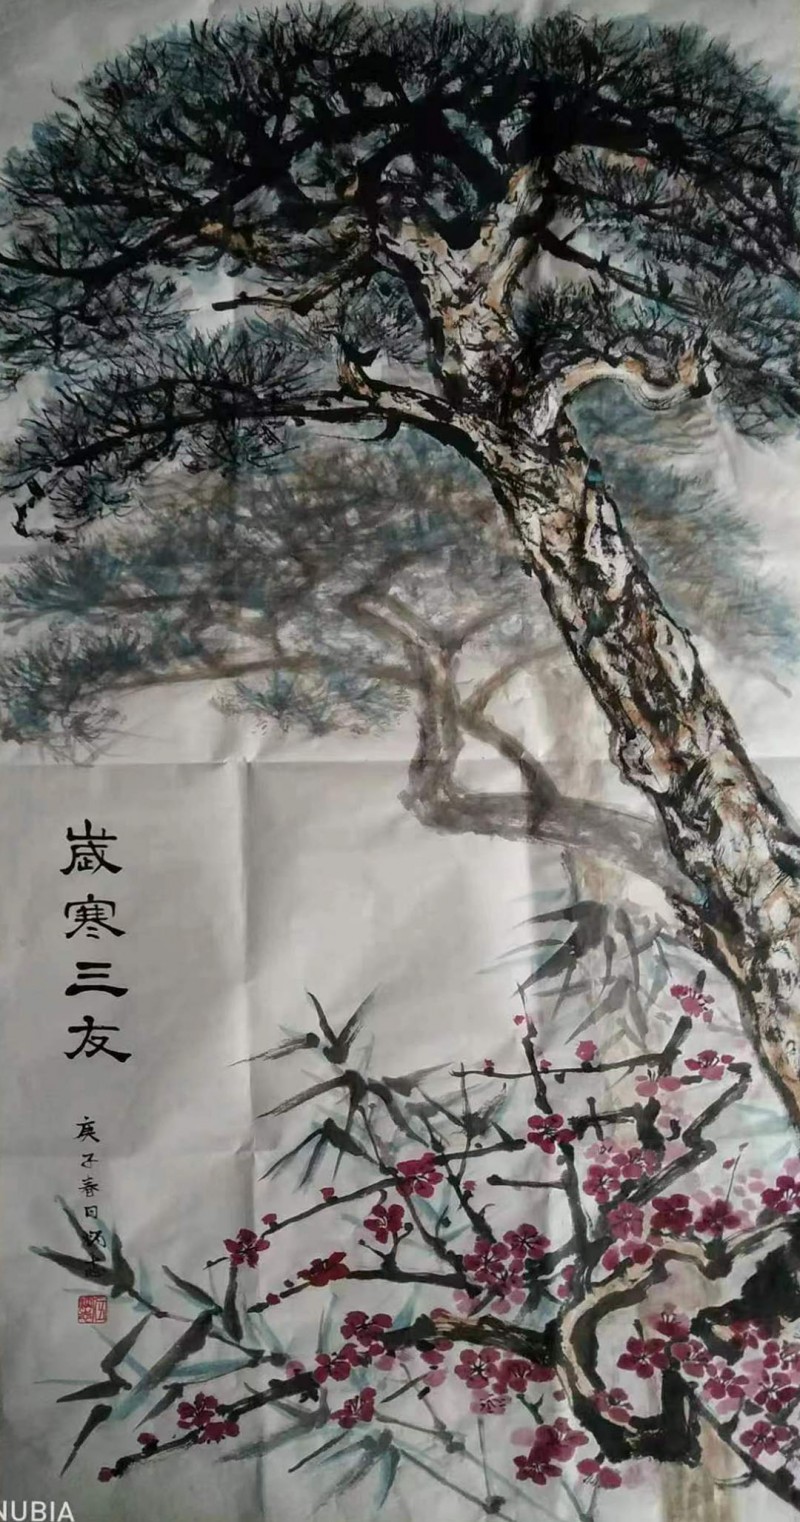 歲寒三友
庚子春日
NUBIA